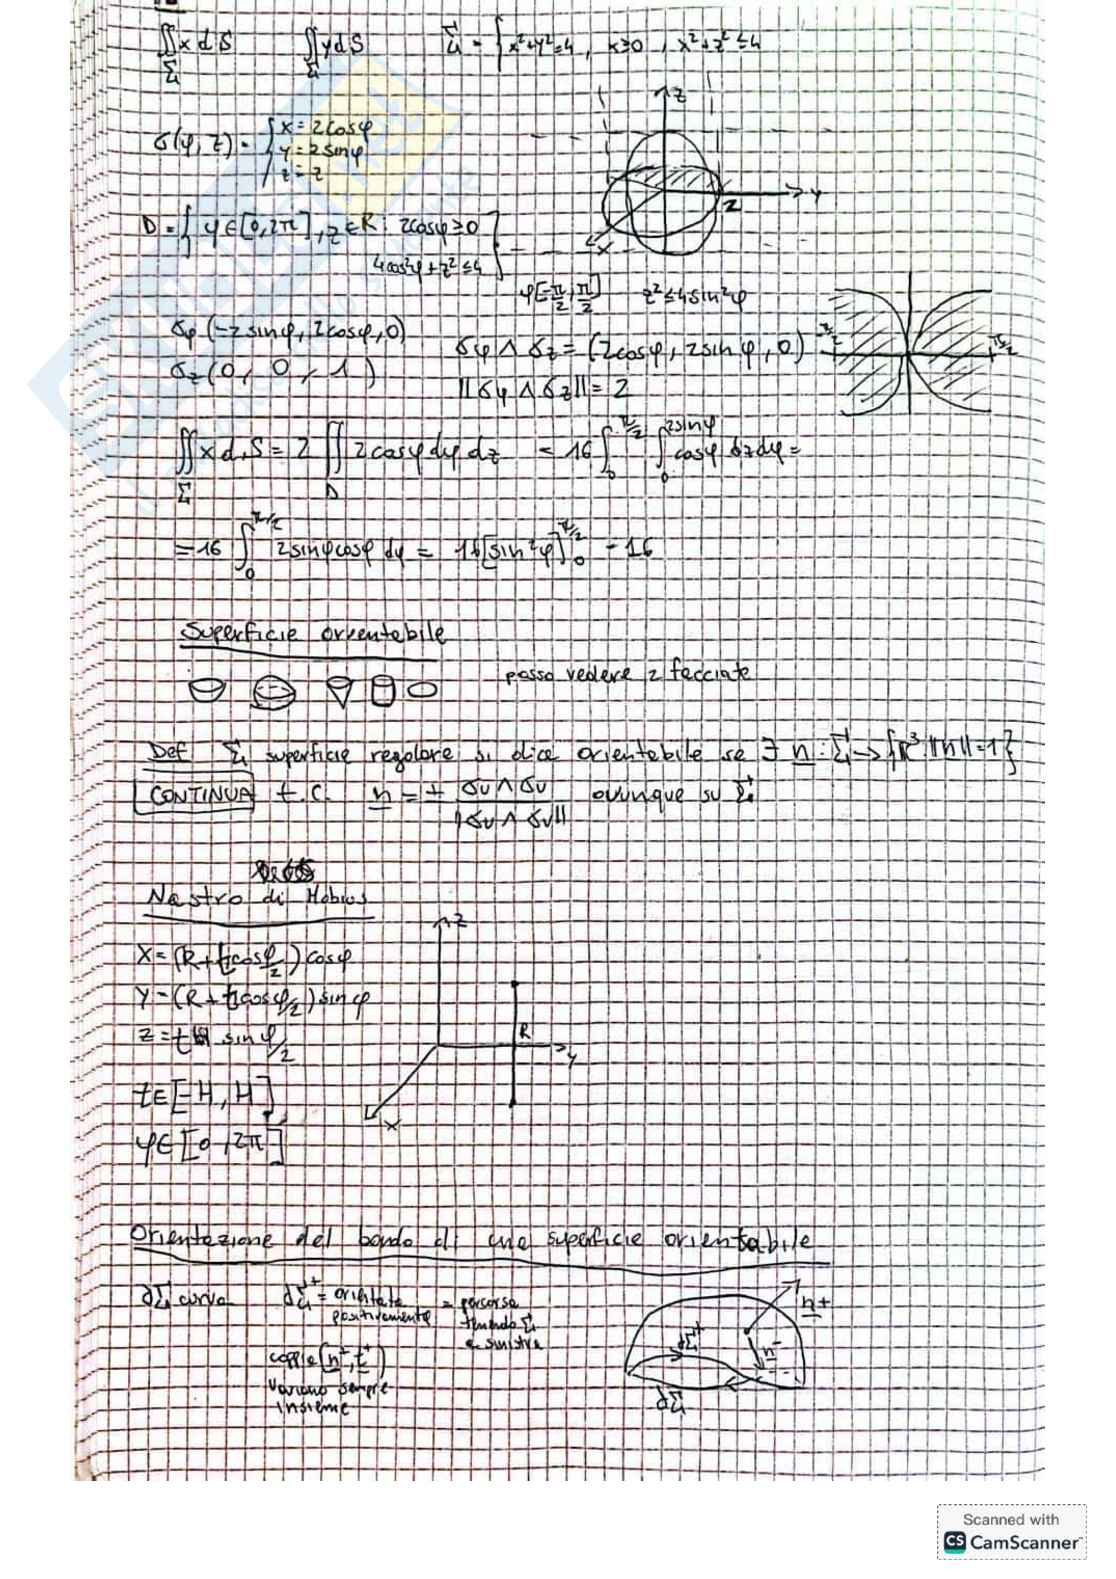 ∬_Σ x dS    ∬_Σ y dS    Σ = { x²+y²=4, x≥0, x²+z²≤4
σ(φ, z) = { x = 2cosφ
y = 2sinφ
z = z
z
y
2
x
D = { φ∈[0,2π], z∈R : 2cosφ≥0
4cos²φ+z²≤4 }
φ[-π/2, π/2]    z²≤4sin²φ
σφ (-2sinφ, 2cosφ, 0)
σz (0, 0, 1)
σφ ∧ σz = (2cosφ, 2sinφ, 0)
||σφ ∧ σz|| = 2
π/2    π/2
∬_Σ x dS = 2 ∬_D 2cosφ dφ dz = 16 ∫_0^{π/2} ∫_0^{2sinφ} cosφ dz dφ =
= 16 ∫_0^{π/2} 2sinφcosφ dφ = 16[sin²φ]_0^{π/2} = 16
Superficie orientabile
posso vedere 2 facciate
Def Σ superficie regolare si dice orientabile se ∃ n : Σ → {R³ : ||n||=1}
CONTINUA t.c. n = ± σu ∧ σv / ||σu ∧ σv|| ovunque su Σ
Nastro di Mobius
x = (R + t cos φ/2) cosφ
y = (R + t cos φ/2) sinφ
z = t sin φ/2
t∈[-H, H]
φ∈[0, 2π]
z
R
y
x
Orientazione del bordo di una superficie orientabile
∂Σ curva    ∂Σ⁺ = orientata positivamente = percorsa tenendo Σ a sinistra
coppie (n⁺, t⁺)
variano sempre
insieme
n⁺
∂Σ⁺
n⁻
∂Σ
Scanned with
CS CamScanner